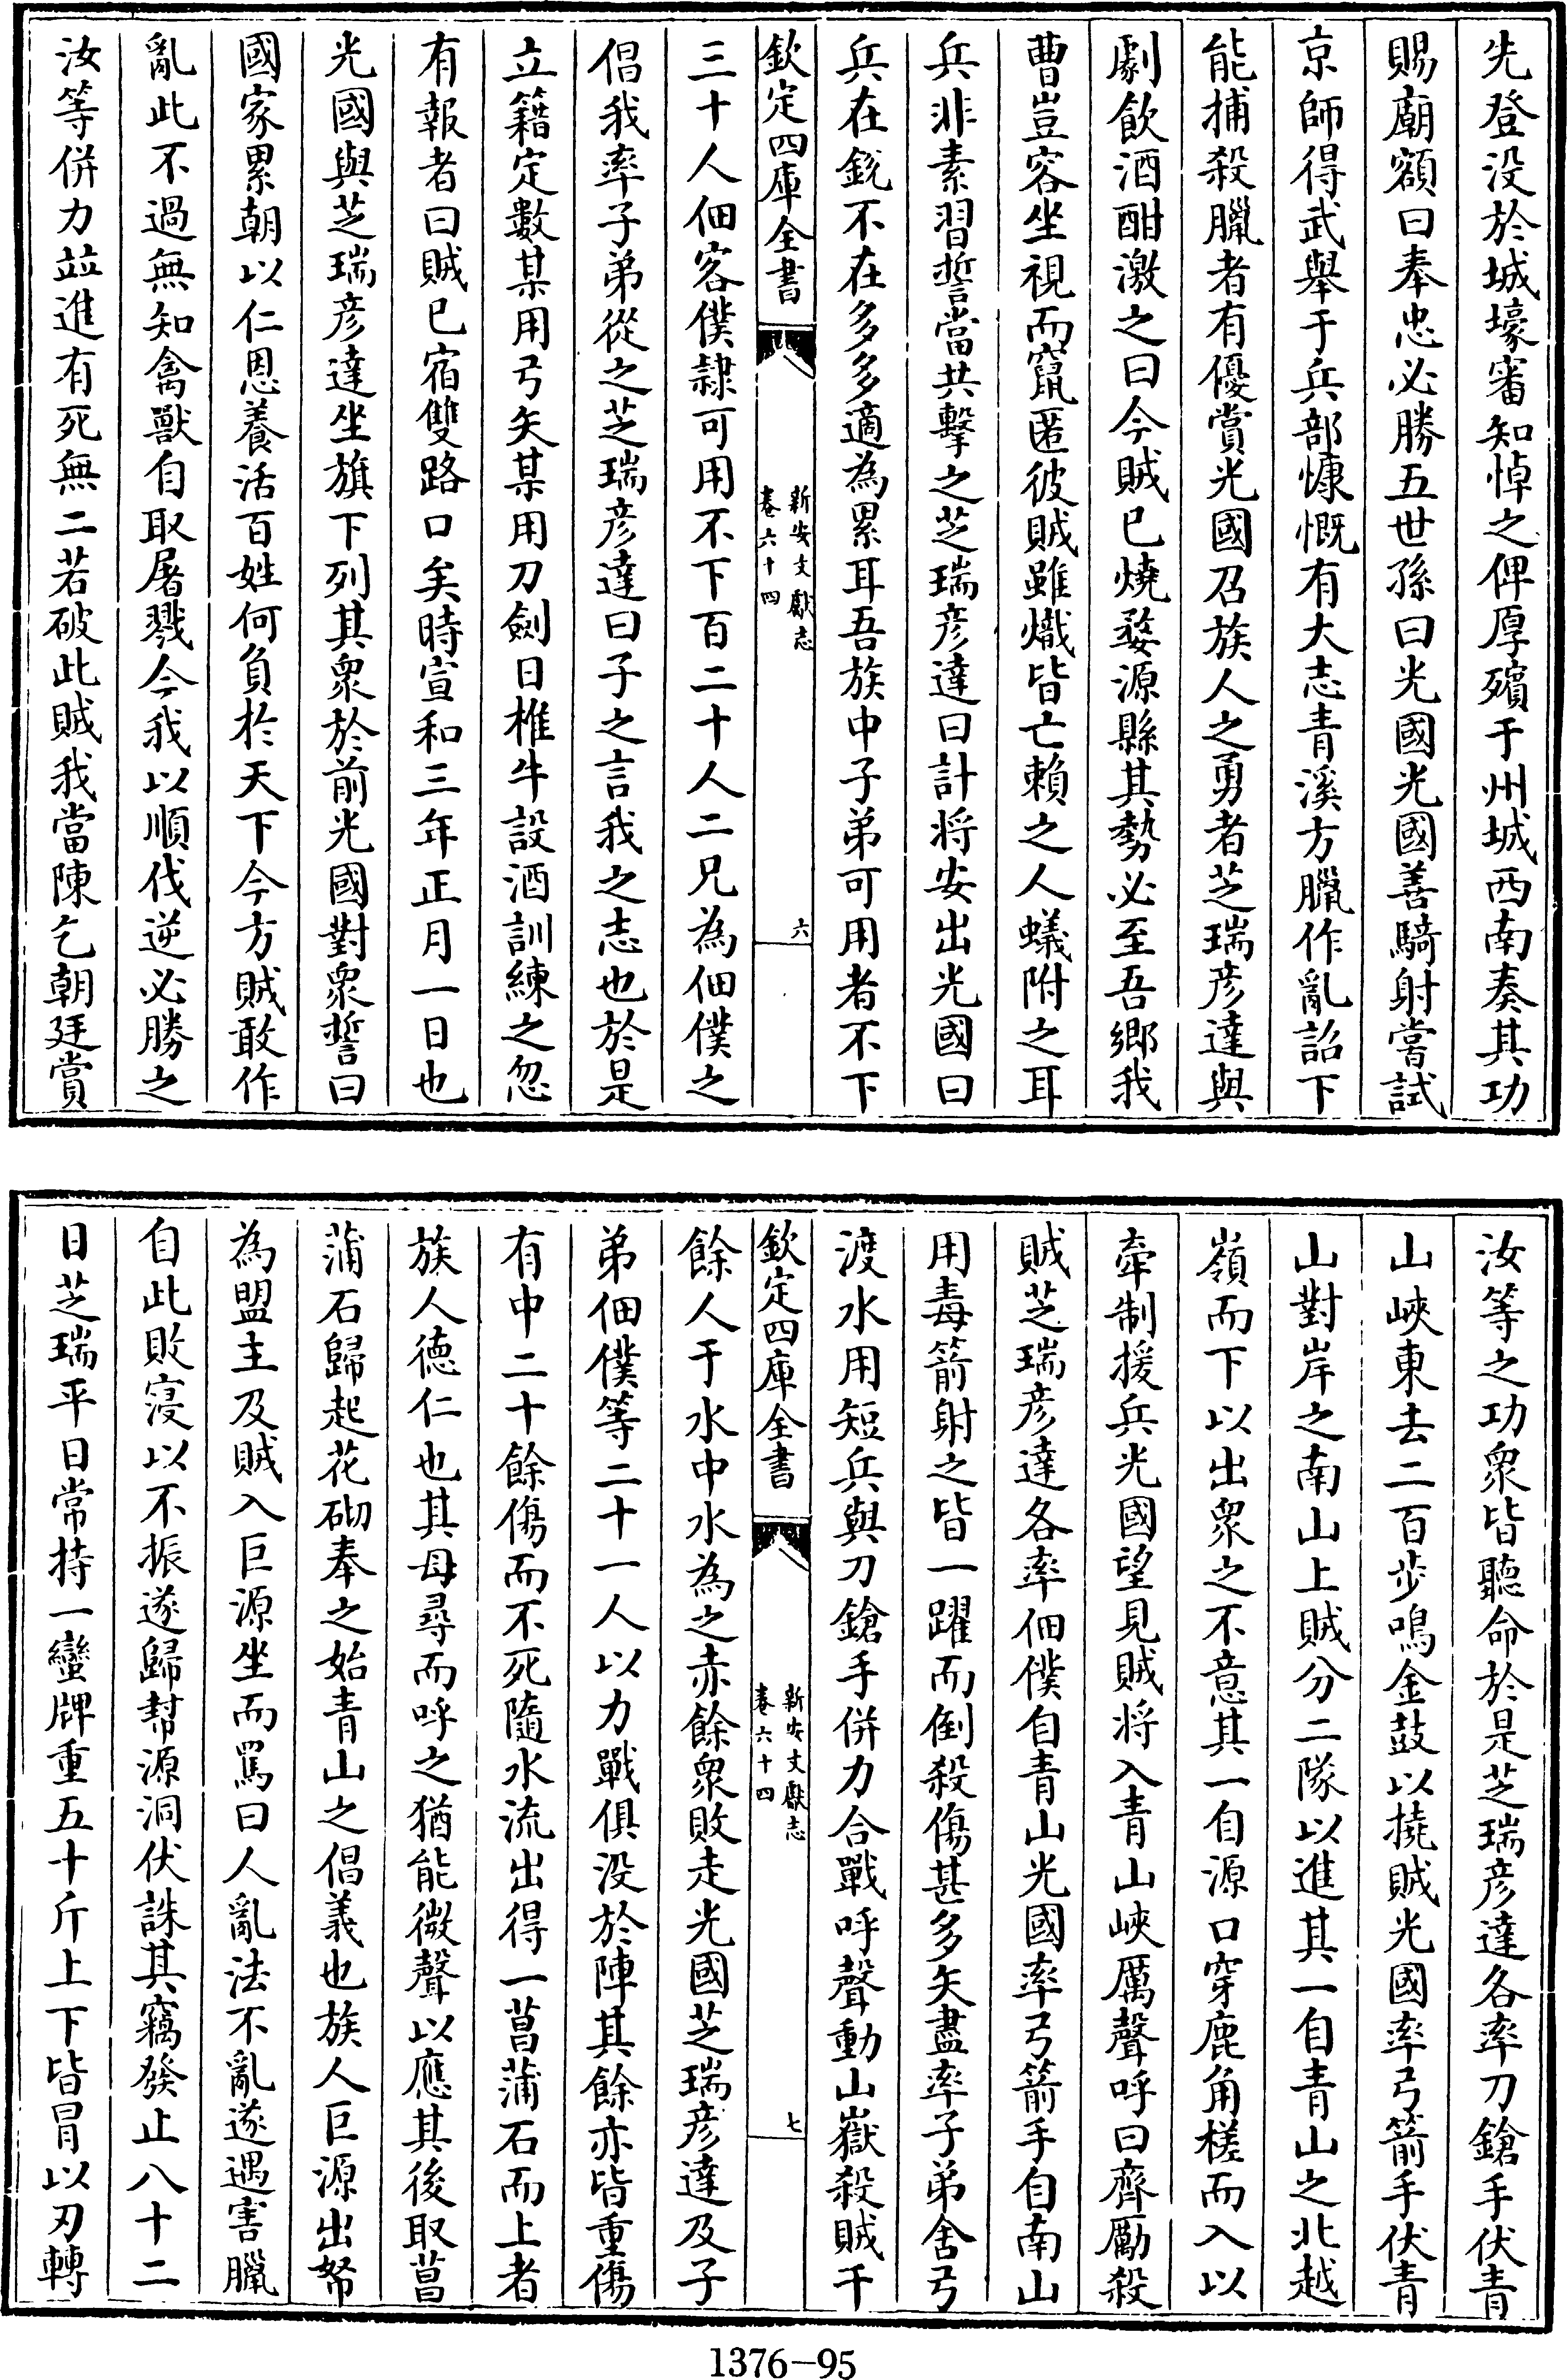 先登没於城壕審知悼之俾厚殯于州城西南奏其功
賜廟額曰奉忠必勝五世孫曰光國光國善騎射嘗試
京師得武舉于兵部慷慨有大志青溪方臘作亂詔下
能捕殺臘者有優賞光國召族人之勇者芝瑞彦達與
劇飲酒酣激之曰今賊已燒婺源縣其勢必至吾鄉我
曹豈容坐視而竄匿彼賊雖熾皆亡賴之人蟻附之耳
兵非素習誓當共擊之芝瑞彦達曰計将安出光國曰
兵在銳不在多多適為累耳吾族中子弟可用者不下
欽定四庫全書
新安文獻志
卷六十四
六
三十人佃客僕隷可用不下百二十人二兄為佃僕之
倡我率子弟從之芝瑞彦達曰子之言我之志也於是
立籍定數某用弓矢某用刀劍日椎牛設酒訓練之忽
有報者曰賊已宿雙路口矣時宣和三年正月一日也
光國與芝瑞彦達坐旗下列其衆於前光國對衆誓曰
國家累朝以仁恩養活百姓何負於天下今方賊敢作
亂此不過無知禽獸自取屠戮今我以順伐逆必勝之
汝等併力並進有死無二若破此賊我當陳乞朝廷賞
汝等之功衆皆聽命於是芝瑞彦達各率刀鎗手伏青
山峽東去二百步鳴金鼓以撓賊光國率弓箭手伏青
山對岸之南山上賊分二隊以進其一自青山之北越
嶺而下以出衆之不意其一自源口穿鹿角槎而入以
牽制援兵光國望見賊将入青山峽厲聲呼曰齊勵殺
賊芝瑞彦達各率佃僕自青山光國率弓箭手自南山
用毒箭射之皆一躍而倒殺傷甚多矢盡率子弟舍弓
渡水用短兵與刀鎗手併力合戰呼聲動山嶽殺賊千
欽定四庫全書
新安文獻志
卷六十四
七
餘人于水中水為之赤餘衆敗走光國芝瑞彦達及子
弟佃僕等二十一人以力戰俱没於陣其餘亦皆重傷
有中二十餘傷而不死隨水流出得一菖蒲石而上者
族人德仁也其母尋而呼之猶能微聲以應其後取菖
蒲石歸起花砌奉之始青山之倡義也族人巨源出帑
為盟主及賊入巨源坐而罵曰人亂法不亂遂遇害臘
自此敗寖以不振遂歸幫源洞伏誅其竊發止八十二
日芝瑞平日常持一蠻牌重五十斤上下皆冒以刃轉
1376-95